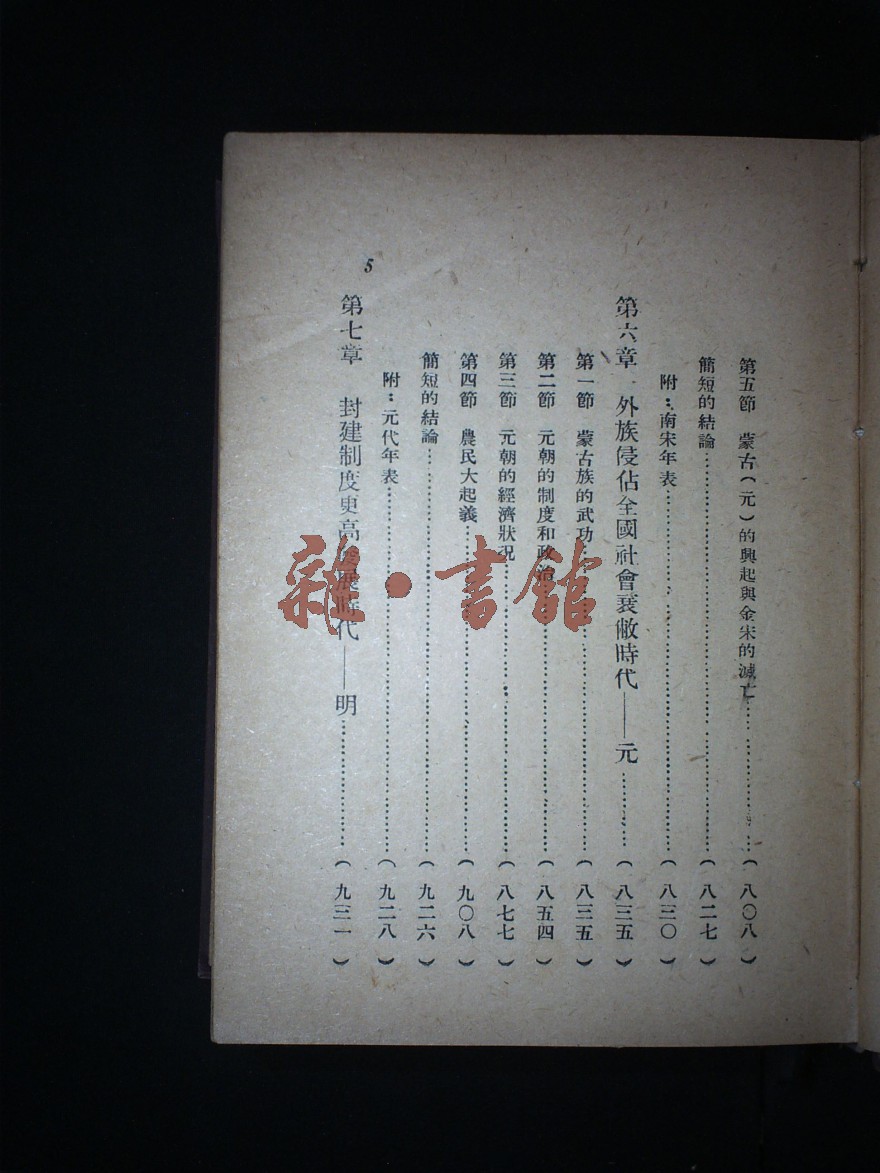 第五節　蒙古(元)的興起與金宋的滅亡……(八〇八)
簡短的結論……(八二七)
附：南宋年表……(八三〇)
第六章　外族侵佔全國社會衰敝時代——元……(八三五)
第一節　蒙古族的武功……(八三五)
第二節　元朝的制度和政治……(八五四)
第三節　元朝的經濟狀况……(八七七)
第四節　農民大起義……(九〇八)
簡短的結論……(九二六)
附：元代年表……(九二八)
第七章　封建制度更高發展時代——明……(九三一)
5
雜·書館